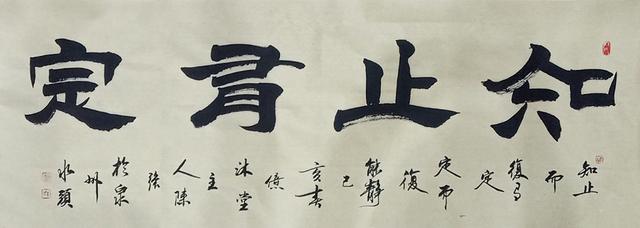 知止有定
知止而復有定定而復能靜
己亥春沐堂主人陳於泉州水頭